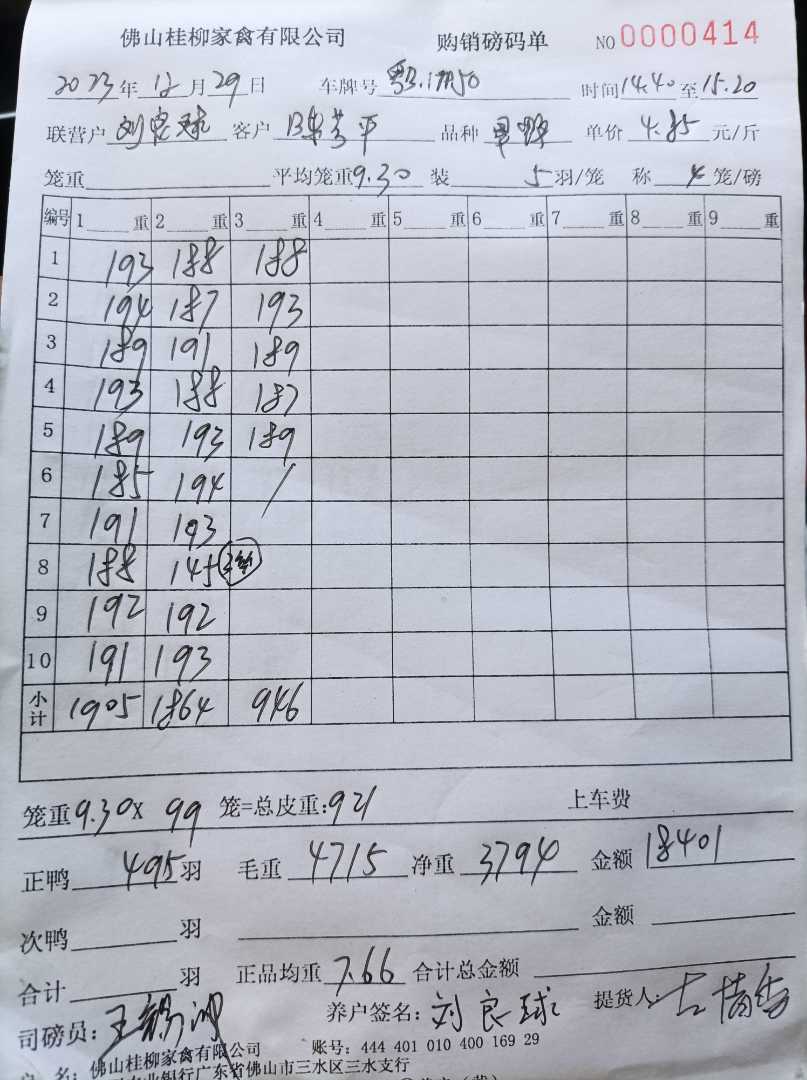 佛山桂柳家禽有限公司 购销磅码单 NO 0000414
2023年12月29日 车牌号 时间14.40至15.20
联营户 刘良球 客户 陈芳平 品种 单价 4.85 元/斤
笼重 平均笼重9.30 装 5 羽/笼 称 4 笼/磅
编号 1 重 2 重 3 重 4 重 5 重 6 重 7 重 8 重 9 重
1 193 188 188
2 194 187 193
3 189 191 189
4 193 188 187
5 189 193 189
6 185 194 /
7 191 193
8 188 145
9 192 192
10 191 193
小计 1905 1864 946
笼重9.30X 99 笼=总皮重:921 上车费
正鸭 495 羽 毛重 4715 净重 3794 金额 18401
次鸭 羽 金额
合计 羽 正品均重 7.66 合计总金额
司磅员: 王 养户签名: 刘良球 提货人:
佛山桂柳家禽有限公司 账号: 444 401 010 400 169 29
名: 业银行广东省佛山市三水区三水支行